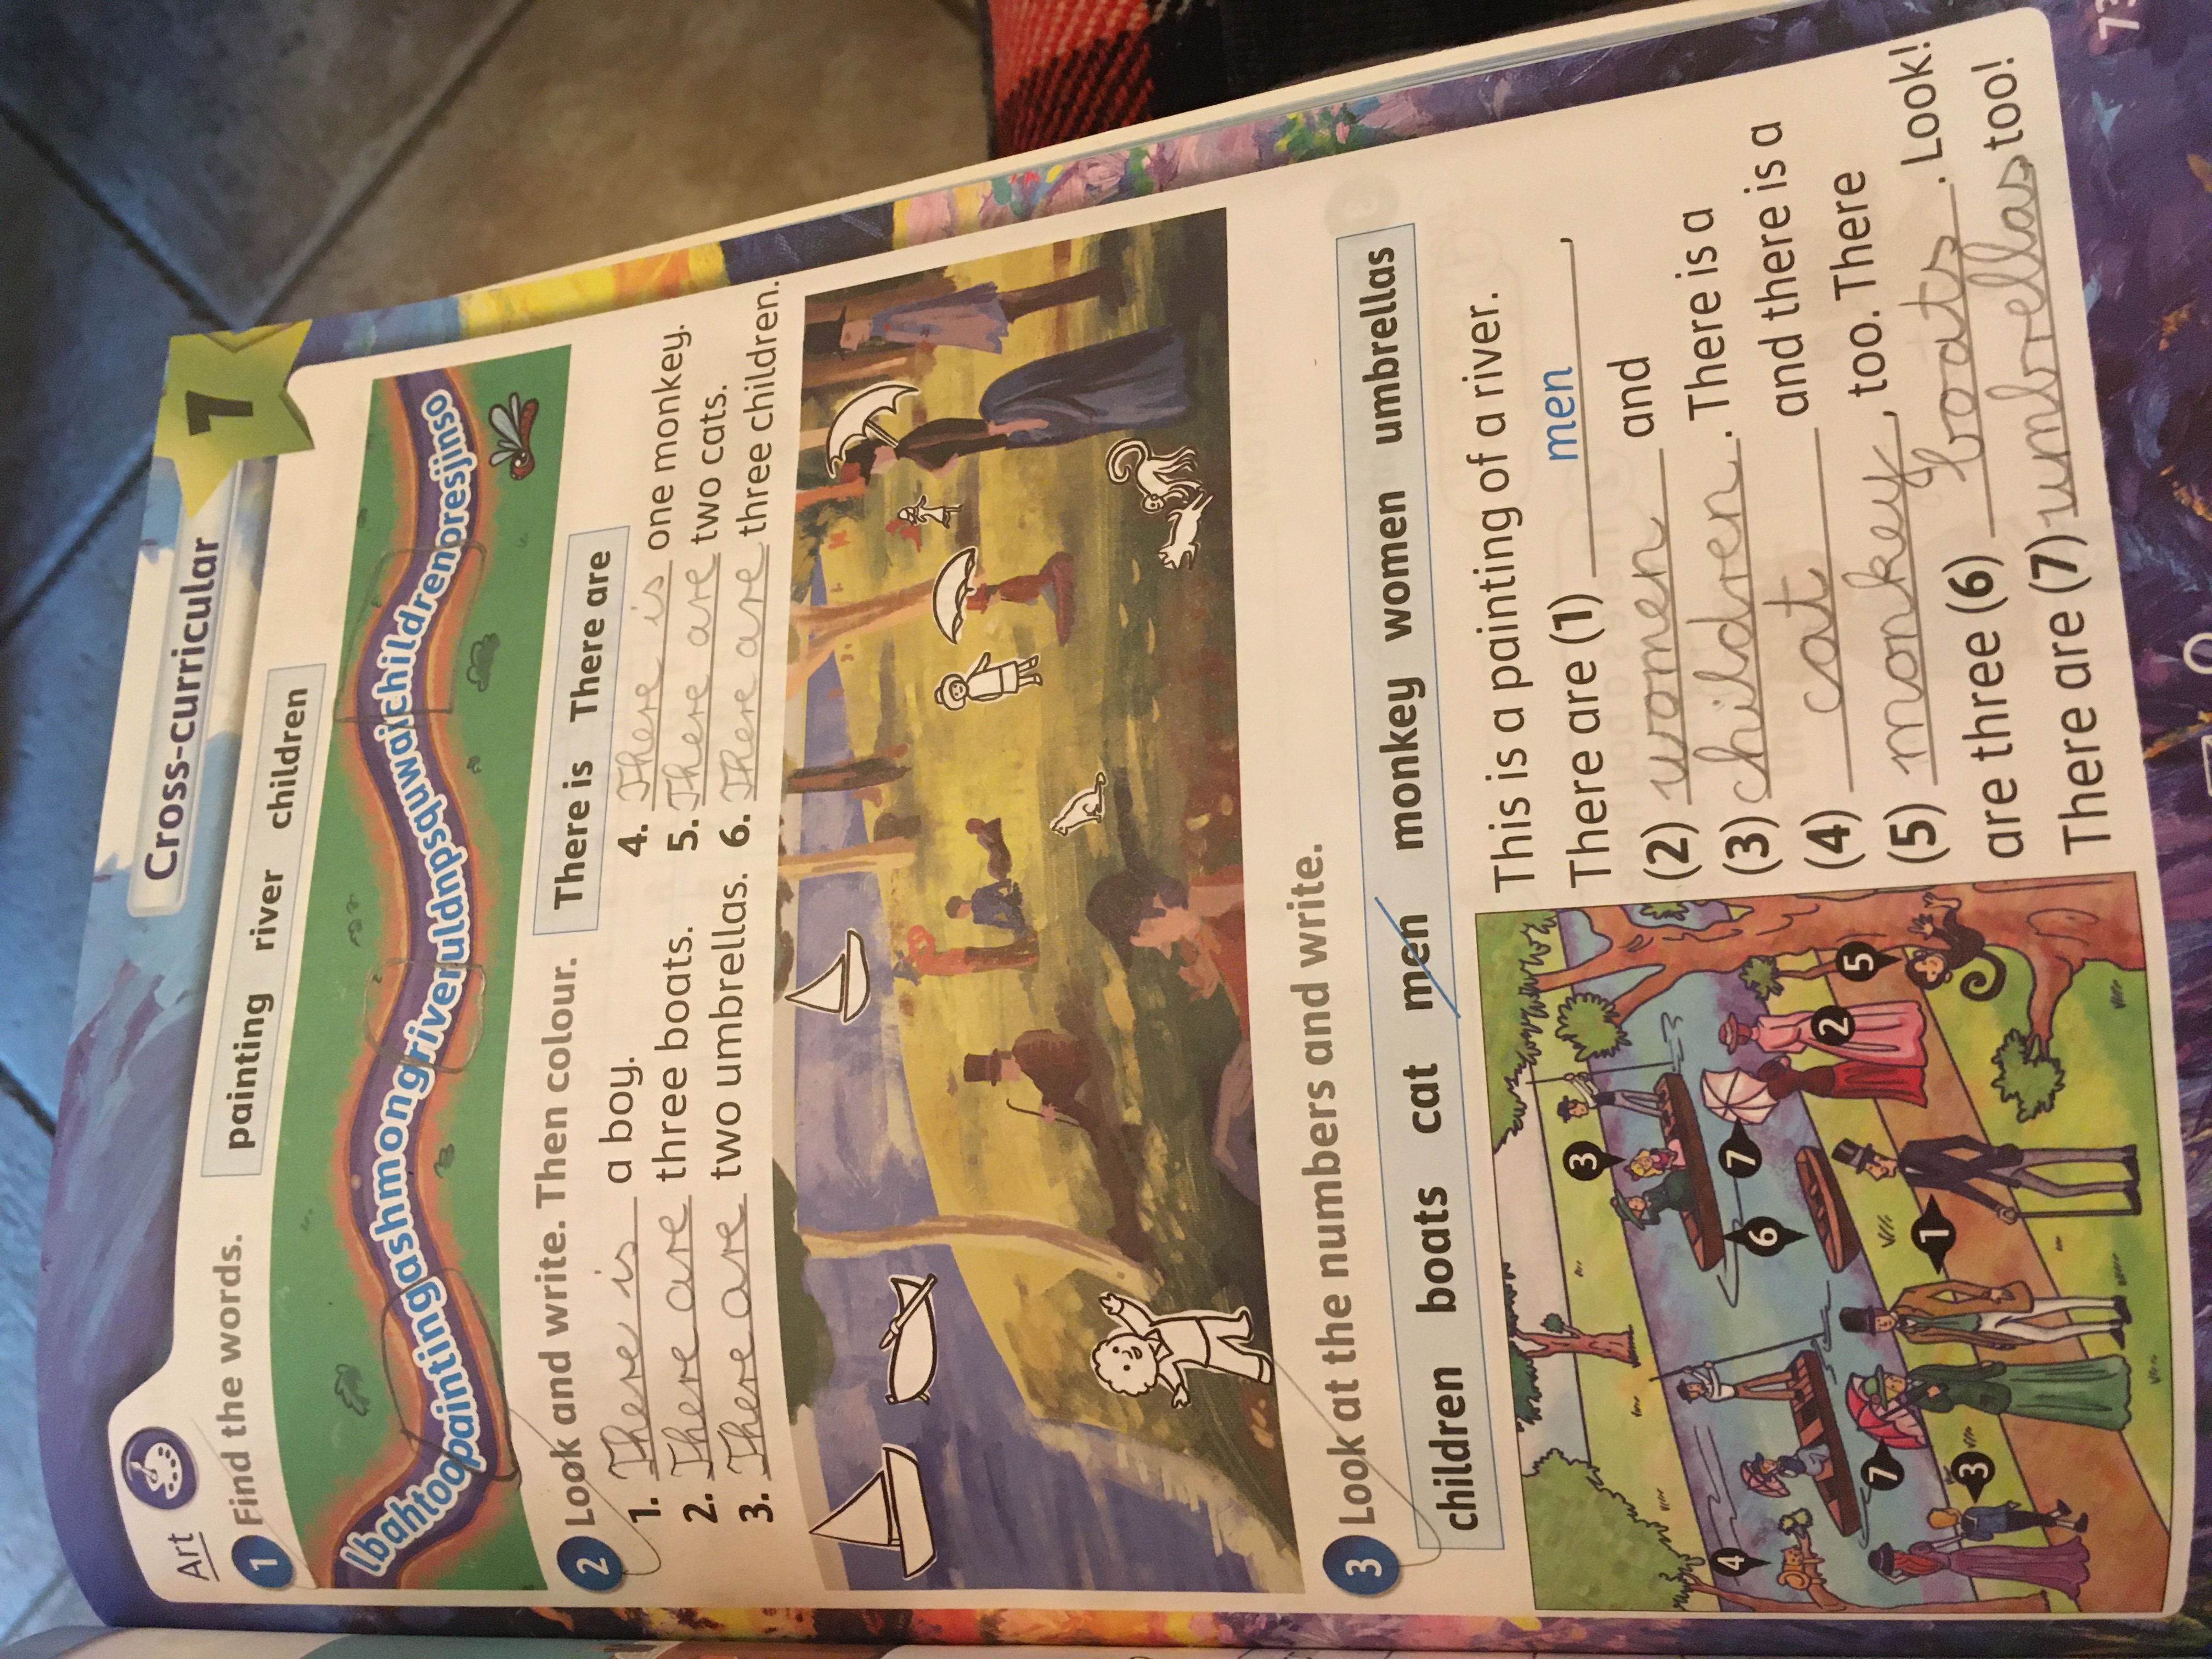 Art
Cross-curricular 7
1 Find the words.
painting river children
lbahtoopaintingashmongriveruldnpsquwaichildrenoresjinso
2 Look and write. Then colour.
There is There are
1. There is a boy.
2. There are three boats.
3. There are two umbrellas.
4. There is one monkey.
5. There are two cats.
6. There are three children.
3 Look at the numbers and write.
children boats cat men monkey women umbrellas
3
4
7
6
2
5
7
1
3
This is a painting of a river.
There are (1) men,
(2) women and
(3) children. There is a
(4) cat and there is a
(5) monkey, too. There
are three (6) boats. Look!
There are (7) umbrellas too!